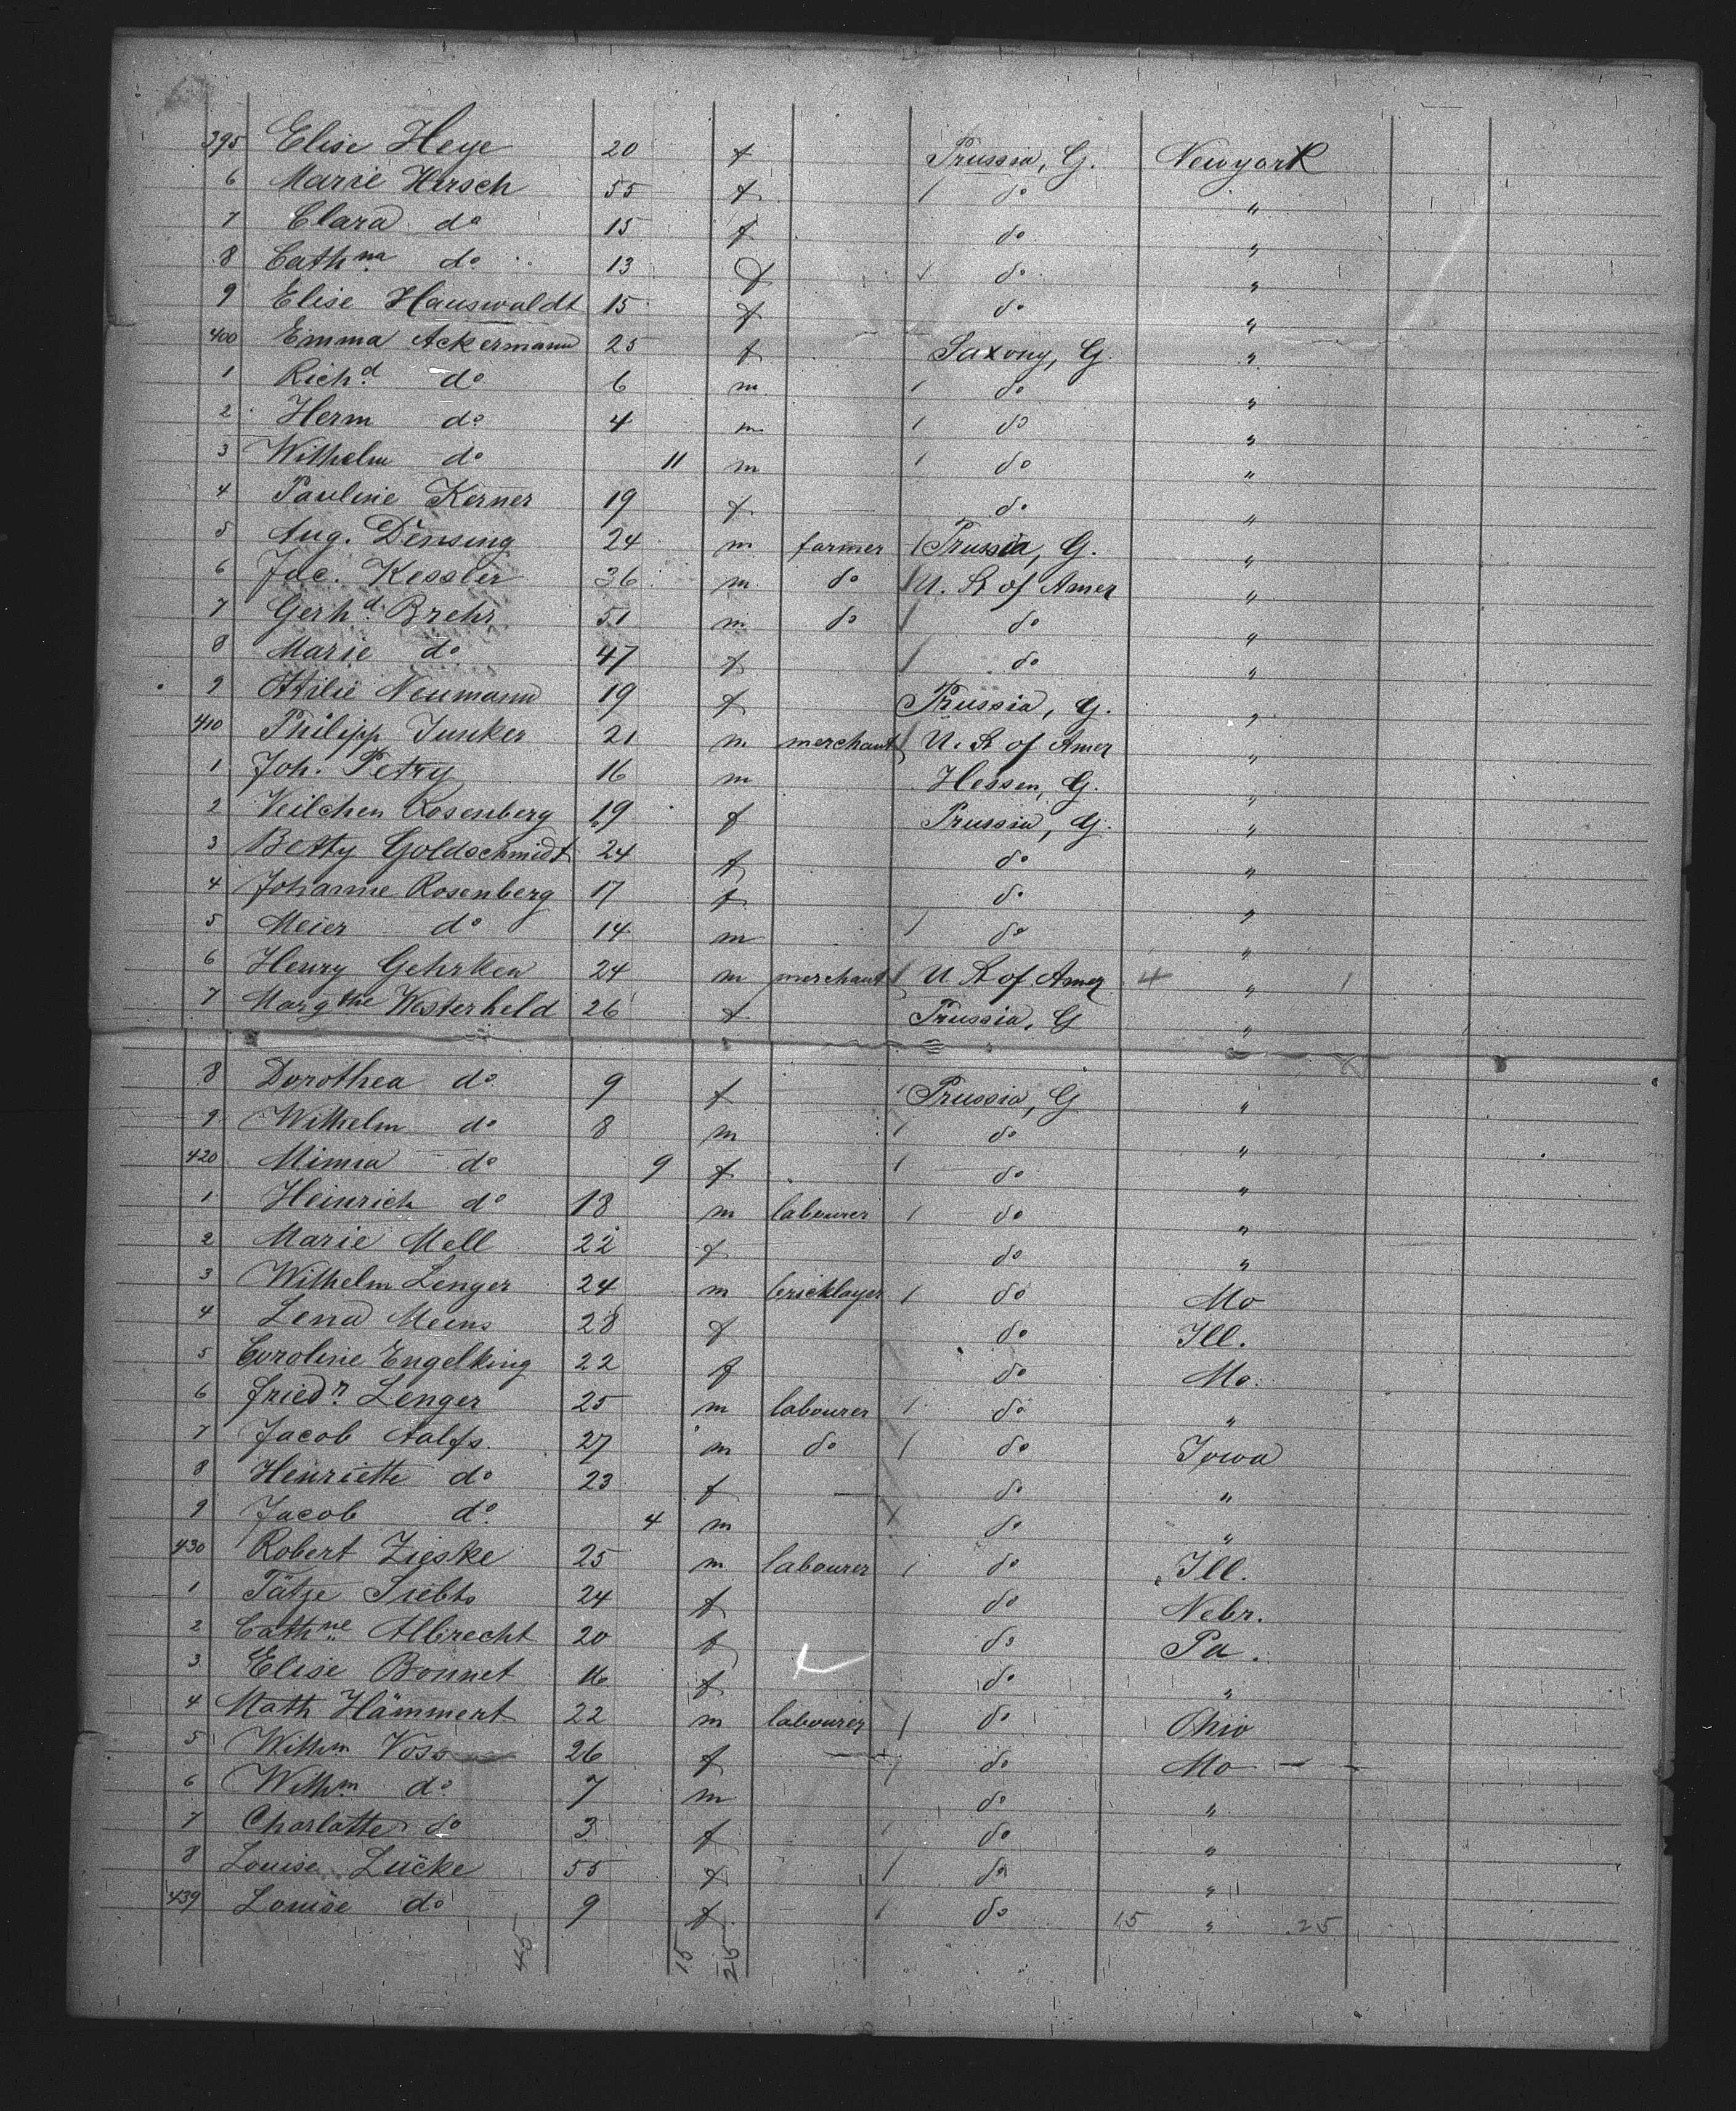 395 Elise Heye 20 f Prussia, G. Newyork
6 Marie Hirsch 55 f / do "
7 Clara do 15 f do "
8 Cathna do 13 f / do "
9 Elise Hauswaldt 15 f do "
400 Emma Ackermann 25 f Saxony, G. "
1 Richd do 6 m / do "
2 Herm do 4 m / do "
3 Wilhelm do 11 m / do "
4 Pauline Kerner 19 f do "
5 Aug. Densing 24 m farmer / Prussia, G. "
6 Jac. Kessler 36 m do / U. St of Amer "
7 Gerhd. Brehr 51 m do / do "
8 Marie do 47 f / do "
9 Ottilie Neumann 19 f Prussia, G. "
410 Philipp Junker 21 m merchant / U. St of Amer "
1 Joh. Petry 16 m Hessen, G. "
2 Veilchen Rosenberg 19 f Prussia, G. "
3 Betty Goldschmidt 24 f do "
4 Johanne Rosenberg 17 f do "
5 Meier do 14 m / do "
6 Henry Gehrken 24 m merchant / U St of Amer 4 " 1
7 Margthe Westerheld 26 f Prussia, G "
8 Dorothea do 9 f / Prussia, G "
9 Wilhelm do 8 m / do "
420 Minna do 9 f / do "
1 Heinrich do 18 m labourer / do "
2 Marie Mell 22 f do "
3 Wilhelm Lenger 24 m bricklayer / do Mo
4 Lena Meins 28 f do Ill.
5 Caroline Engelking 22 f do Mo.
6 Friedr. Lenger 25 m labourer / do "
7 Jacob Aalfs 27 m do / do Iowa
8 Henriette do 23 f do "
9 Jacob do 4 m do "
430 Robert Zieske 25 m labourer / do Ill.
1 Tätje Siebts 24 f do Nebr.
2 Cathne Albrecht 20 f do Pa.
3 Elise Bonnet 16 f do "
4 Math Hämmert 22 m labourer / do Ohio
5 Wilhm Voss 26 f / do Mo
6 Wilhm. do 7 m do "
7 Charlotte do 3 f / do "
8 Louise Lücke 55 f / do "
439 Louise do 9 f / do 15 " 25
45 15 25